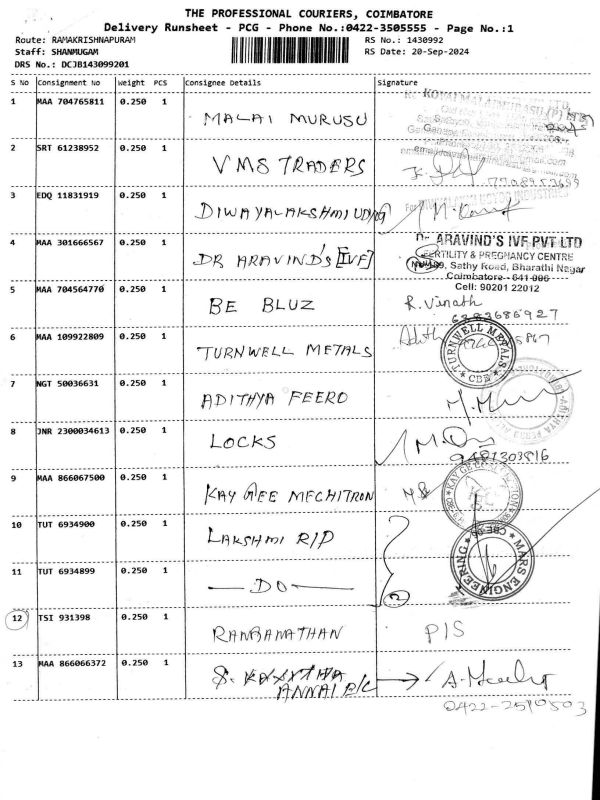 THE PROFESSIONAL COURIERS, COIMBATORE
Delivery Runsheet - PCG - Phone No.:0422-3505555 - Page No.:1
Route: RAMAKRISHNAPURAM
RS No.: 1430992
Staff: SHANMUGAM
RS Date: 20-Sep-2024
DRS No.: DCJB143099201
S No Consignment No Weight PCS Consignee Details Signature
1 MAA 704765811 0.250 1 MALAI MURUSU
2 SRT 61238952 0.250 1 VMS TRADERS
7708953699
3 EDQ 11831919 0.250 1 DIWAYALAKSHMI UDYOG
4 MAA 301666567 0.250 1 DR ARAVIND'S [IVF]
Dr. ARAVIND'S IVF PVT LTD
FERTILITY & PREGNANCY CENTRE
Sathy Road, Bharathi Nagar
Coimbatore - 641 006
Cell: 90201 22012
5 MAA 704564770 0.250 1 BE BLUZ R. Vinath
6383686927
6 MAA 109922809 0.250 1 TURNWELL METALS
TURNWELL METALS
CBE
7 NGT 50036631 0.250 1 ADITHYA FEERO
8 JNR 2300034613 0.250 1 LOCKS
9487303816
9 MAA 866067500 0.250 1 KAY GEE MECHITRON
10 TUT 6934900 0.250 1 LAKSHMI RIP
MARS ENGINEERING
CBE-06
11 TUT 6934899 0.250 1 — DO — 2
12 TSI 931398 0.250 1 RANGANATHAN P/S
13 MAA 866066372 0.250 1 S.
ANNAI P/C
0422-2590503